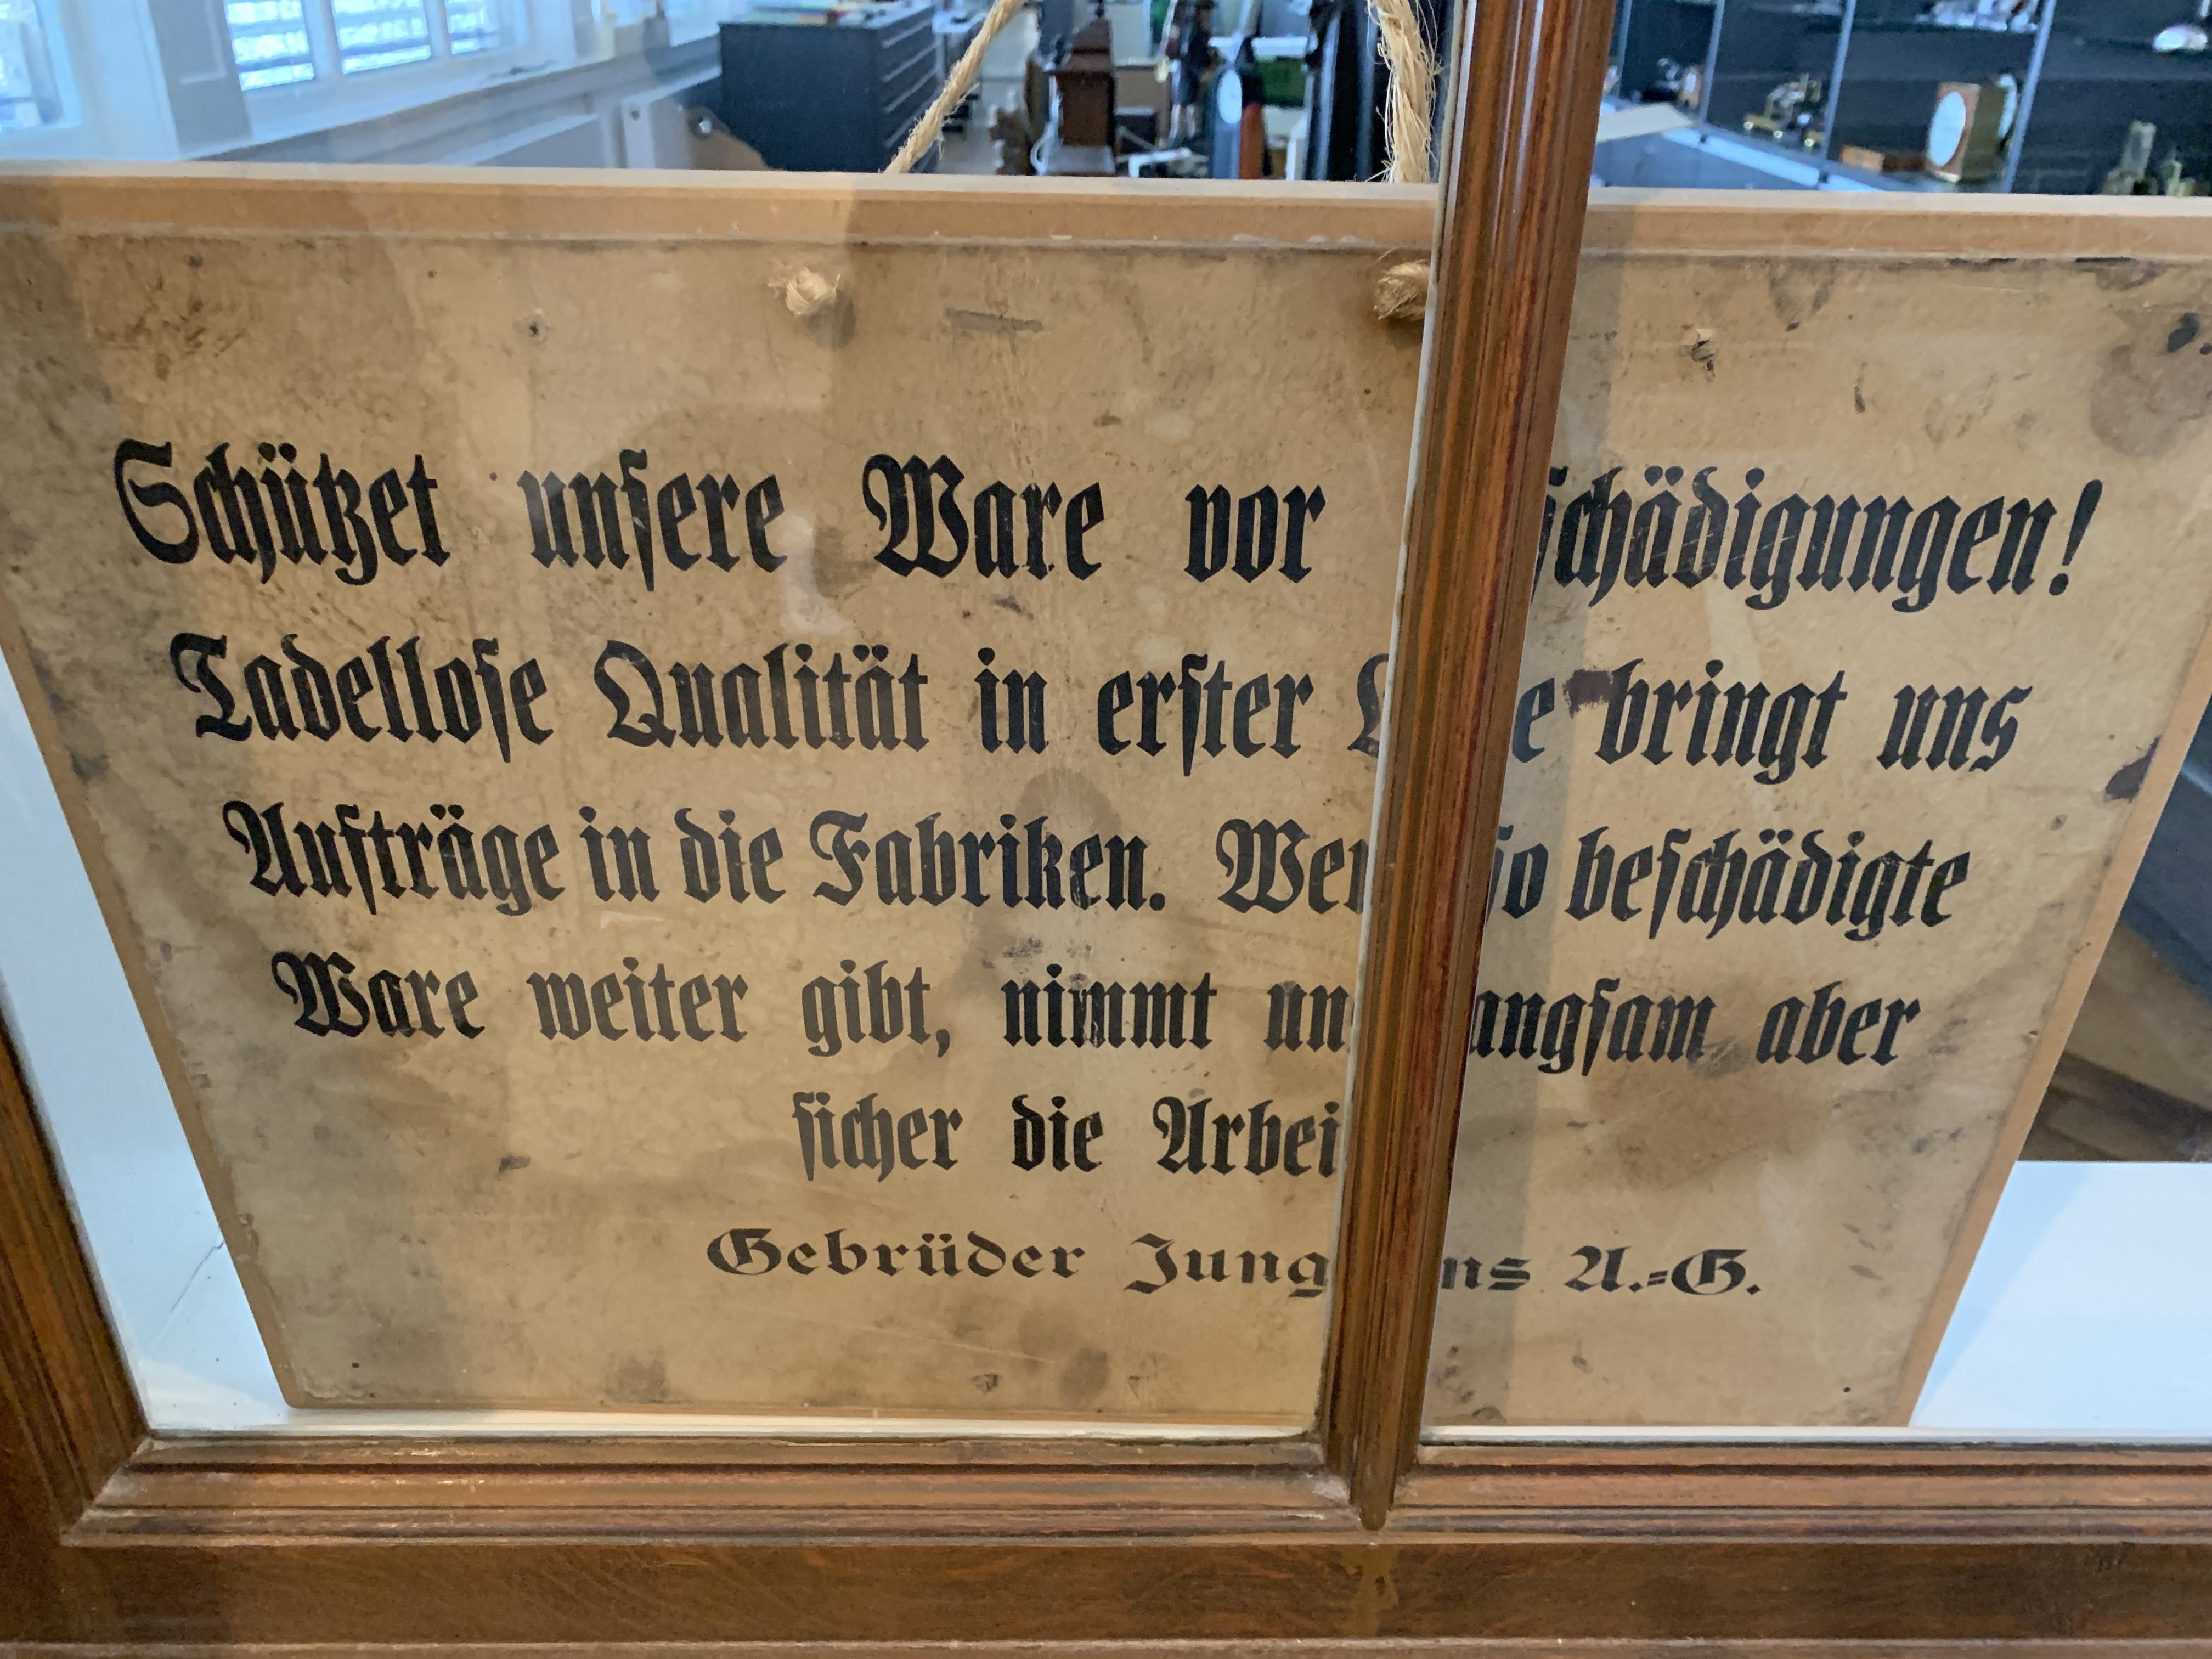 Schützet unsere Ware vor schädigungen!
Tadellose Qualität in erster bringt uns
Aufträge in die Fabriken. Wer so beschädigte
Ware weiter gibt, nimmt angsam aber
sicher die Arbei
Gebrüder Jung ns A.=G.